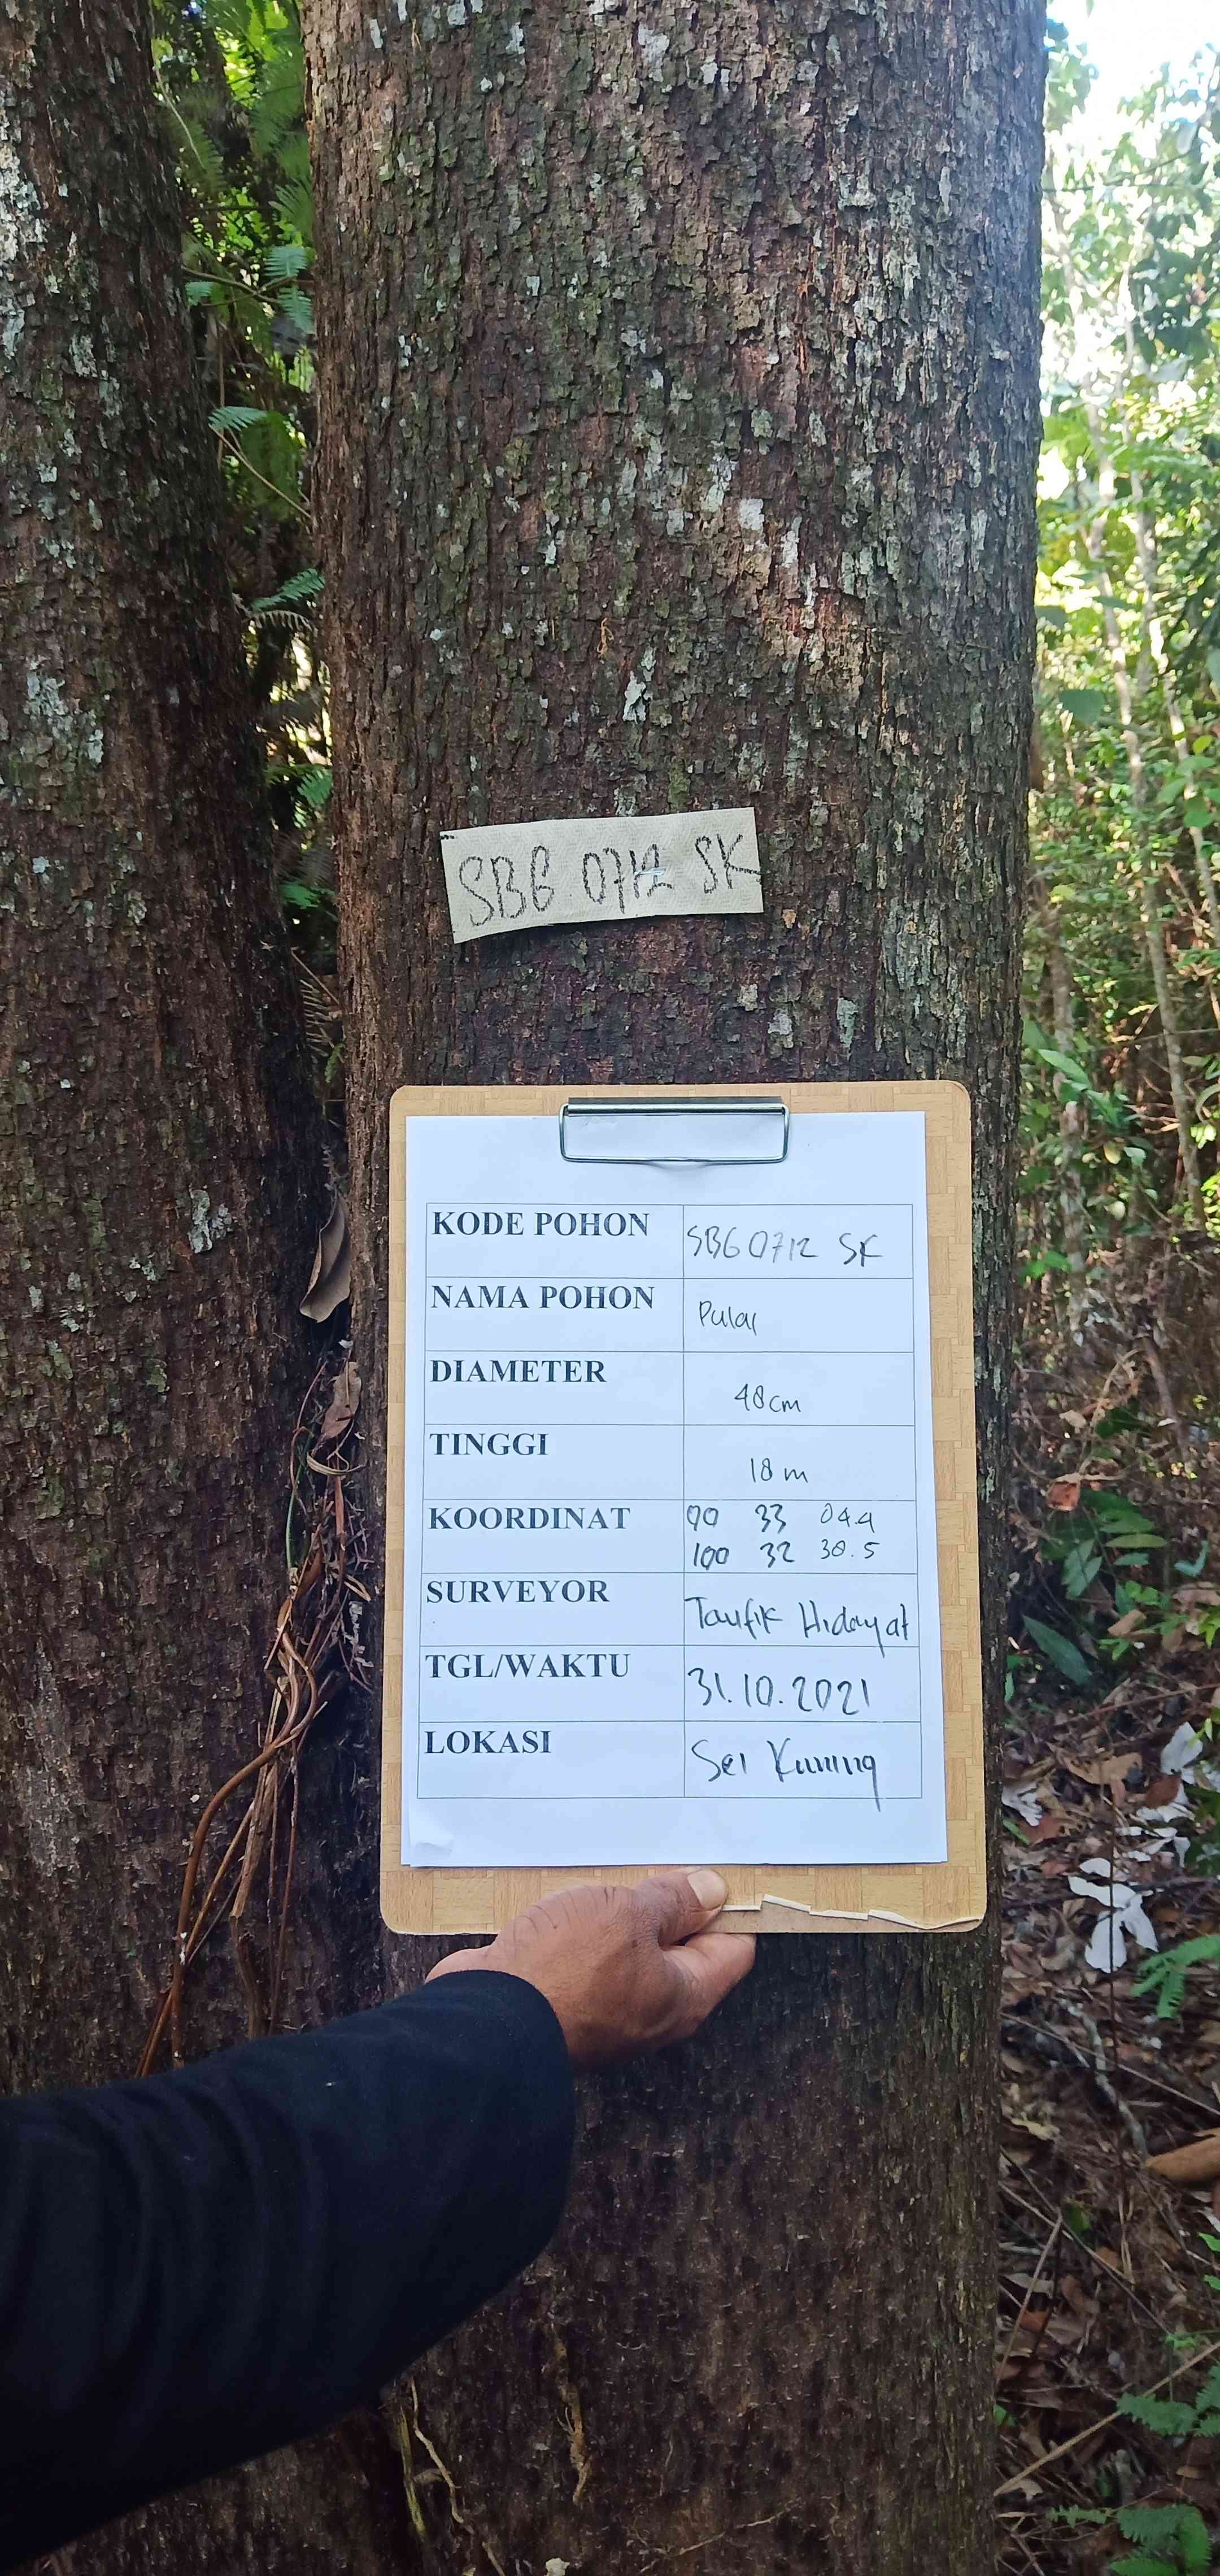 SBG 0712 SK
KODE POHON SBG 0712 SK
NAMA POHON Pulai
DIAMETER 48cm
TINGGI 18 m
KOORDINAT 90 33 04.4
100 32 30.5
SURVEYOR Taufik Hidayat
TGL/WAKTU 31.10.2021
LOKASI Sei Kuning